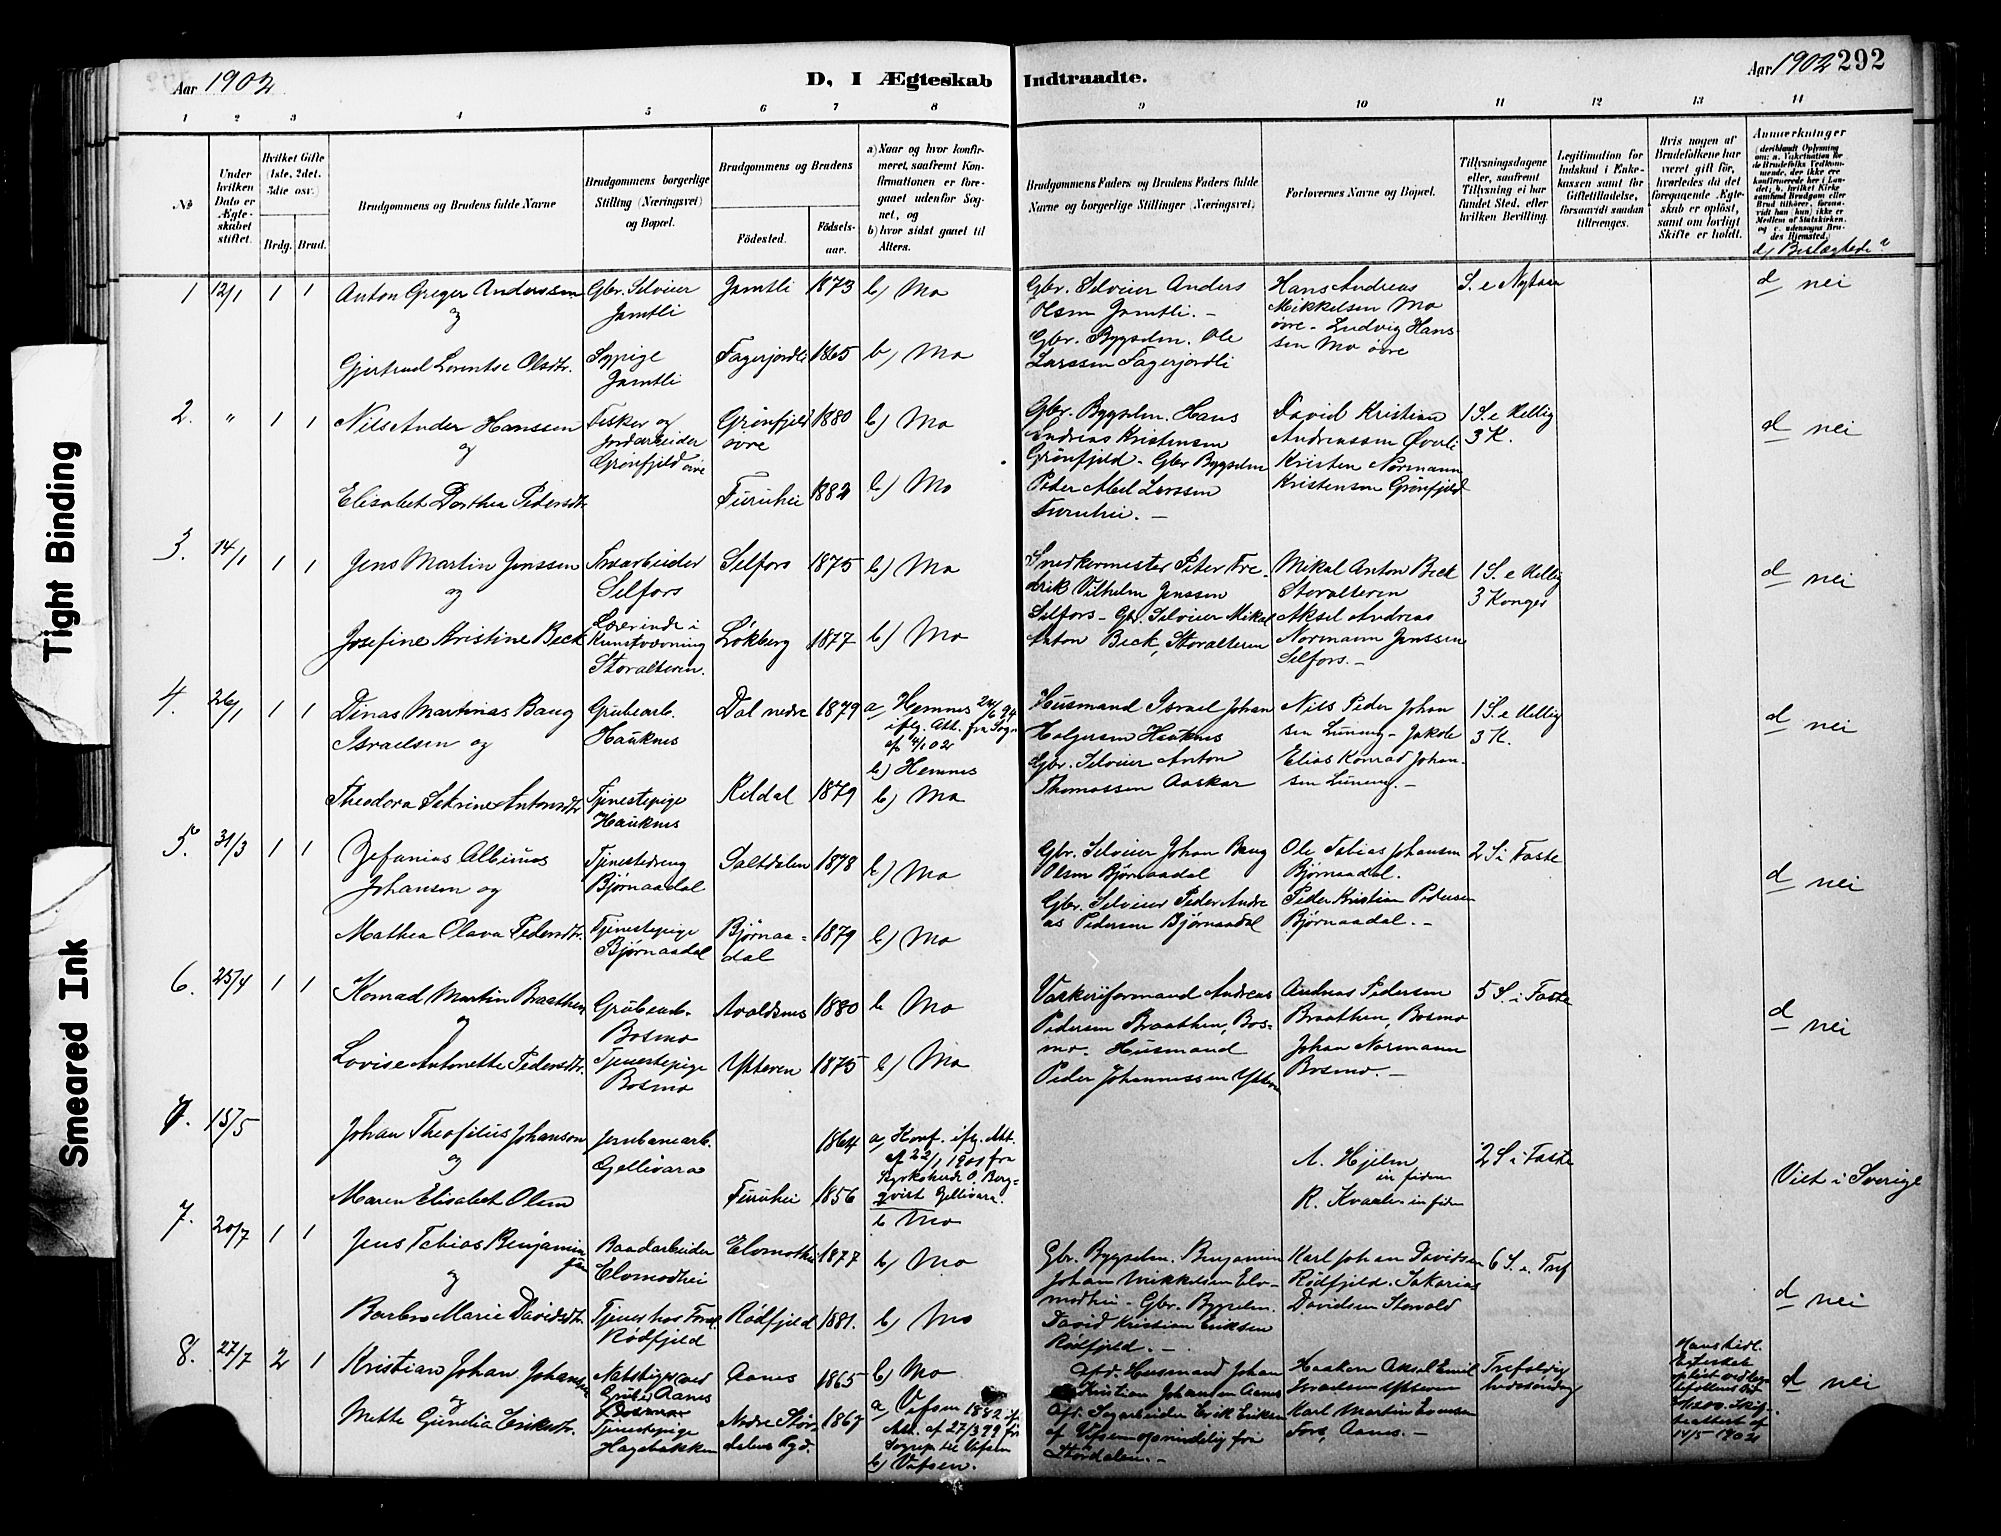 Aar 1902
D, I Ægteskab Indtraadte.
Aar 1902 292
1 2 3 4 5 6 7 8 9 10 11 12 13 14
No
Under hvilken Dato er Ægteskabet stiftet.
Hvilket Gifte (1ste, 2det, 3die osv.)
Brdg. Brud.
Brudgommens og Brudens fulde Navne
Brudgommens borgerlige Stilling (Næringsvei) og Bopæl.
Brudgommens og Brudens
Fødested. Fødselsaar.
a) Naar og hvor konfirmeret, saafremt Konfirmationen er foregaaet udenfor Sognet, og
b) hvor sidst gaaet til Alters.
Brudgommens Faders og Brudens Faders fulde Navne og borgerlige Stillinger (Næringsvei)
Forlovernes Navne og Bopæl.
Tillysningsdagene eller, saafremt Tillysning ei har fundet Sted, efter hvilken Bevilling.
Legitimation for Indskud i Enkekassen samt for Giftetilladelse, forsaavidt saadan tiltrænges.
Hvis nogen af Brudefolkene har været gift før, hvorledes da det foregaaende Ægteskab er opløst, samt om lovligt Skifte er holdt.
Anmerkninger
d) Beslægtede?
1 12/1 1 1 Anton Greger Anderssen og
Gbr. Selveier Jamtli
Jamtli 1873 b) Mo
Gbr. Selveier Anders Olsen Jamtli. -
Hans Andreas Mikkelsen Mo øvre - Ludvig Hanssen Mo øvre
S. e Nytaar
d nei
Gjertrud Lorentse Olsdtr.
Sypige Jamtli
Fagerjordli 1865 b) Mo
Gbr. Bygselm. Ole Larssen Fagerjordli
2. " 1 1 Nils Ander Hanssen og
Fisker og Jordarbeider Grønfjeld øvre
Grønfjeld øvre 1880 b) Mo
Gbr. Bygselm. Hans Andreas Kristensen Grønfjeld - Gbr Bygselm
David Kristian Andreassen Øverli
Kristen Normann Kristensen Grønfjeld
1 S. e Hellig 3 K.
d nei
Elisabet Dorthea Pedersdtr
Furuhei 1882 b) Mo
Peder Abel Larssen Furuhei. -
3. 14/1 1 1 Jens Martin Jenssen og
Selfors
Selfors 1875 b) Mo
Snedkermester Peter Fredrik Vilhelm Jenssen Selfors - Gbr. Selveier Mikal Anton Beck, Storalteren
Mikal Anton Beck Storalteren
Aksel Andreas Normann Jenssen Selfors. -
1 S. e Hellig 3 Konger
d nei
Josefine Kristine Beck
Lærerinde i Kunstvævning Storalteren.
Løkberg 1877 b) Mo
4. 26/1 1 1 Dinas Martinas Baug Israelsen og
Grubearb. Hauknes
Dal nedre 1879 a) Hemnes 24/6 94 iflg. Att. fra Sogn af 14/1 02
b) Hemnes
Husmand Israel Johan Holgersen Hauknes
Gbr. Selveier Anton Thomassen Aaskar
Nils Peder Johansen Luneng - Jakob Elias Konrad Johansen Luneng. -
1 S. e Hellig 3 K.
d nei
Theodora Petrine Antonsdtr
Tjenestepige Hauknes
Kildal 1879 b) Mo
5. 31/3 1 1 Zefanias Albinus Johansen og
Tjenestedreng Bjørnaadal
Saltdalen 1878 b) Mo
Gbr. Selveier Johan Baug Olsen Bjørnaadal
Gbr. Selveier Peder Andreas Pedersen Bjørnaadal
Ole Tobias Johansen Bjørnaadal.
Peder Kristian Pedersen Bjørnaadal. -
2 S i Faste
d nei
Mathea Olava Pedersdtr.
Tjenestepige Bjørnaadal
Bjørnaadal 1879 b) Mo
6. 25/4 1 1 Konrad Martin Braathen og
Grubearb. Bosmo
Avaldsnes 1880 b Mo
Vaskeriformand Andreas Pedersen Braathen, Bosmo. Husmand Peder Johannessen Ytteren
Andreas Pedersen Braathen, Bosmo
Johan Normann Bosmo. -
5 S. i Faste
d nei
Lovise Antonette Pedersdtr.
Tjenestepige Bosmo
Ytteren 1875 b) Mo
7. 15/5 Johan Theofilus Johanson og
Jernbanearb. Gellivara
1864 a) Konf. iflg. Att. af 22/1 1901 fra Kyrkoherde O. Bergqvist Gellivara.
A. Hjelm in fidem
R. Kvaale in fidem
2 S i Faste
Viet i Sverige
Maren Elisabet Olsen
Furuhei 1856
b Mo
7. 20/7 1 1 Jens Tobias Benjaminsen og
Baadarbeider Elvmodhei
Elvmodhei 1877 b) Mo
Gbr. Bygselm. Benjamin Johan Mikkelsen Elvmodhei - Gbr. Bygselm. David Kristian Eriksen Rødfjeld. -
Karl Johan Davidsen Rødfjeld. Sakarias Davidsen Storvold
6 S. e. Tref
d nei
Barbro Marie Davidsdtr.
Tjener hos Foræl. Rødfjeld
Rødfjeld 1881. b) Mo
8. 27/7 2 1 Kristian Johan Johansen og
Aanes
Aanes 1865 b) Mo
Afd. Husmand Johan Kristian Johansen Aanes
Afd. Sagarbeider Erik Eriksen af Vefsen oprindelig fra Størdalen. -
Haakon Aksel Emil Israelsen Ytteren
Karl Martin Evensen Fors, Aanes. -
Trefoldighedssøndag
14/5 1902
d nei
Mette Gundia Eriksdtr.
Tjenestepige Hagebakken
Nedre Størdalens Pgd. 1867 a Vefsen 1882 ifl. Att. af 27/3 99 fra Sogнеpr. til Vefsen
b) Vefsen.
Tight Binding
Smeared Ink